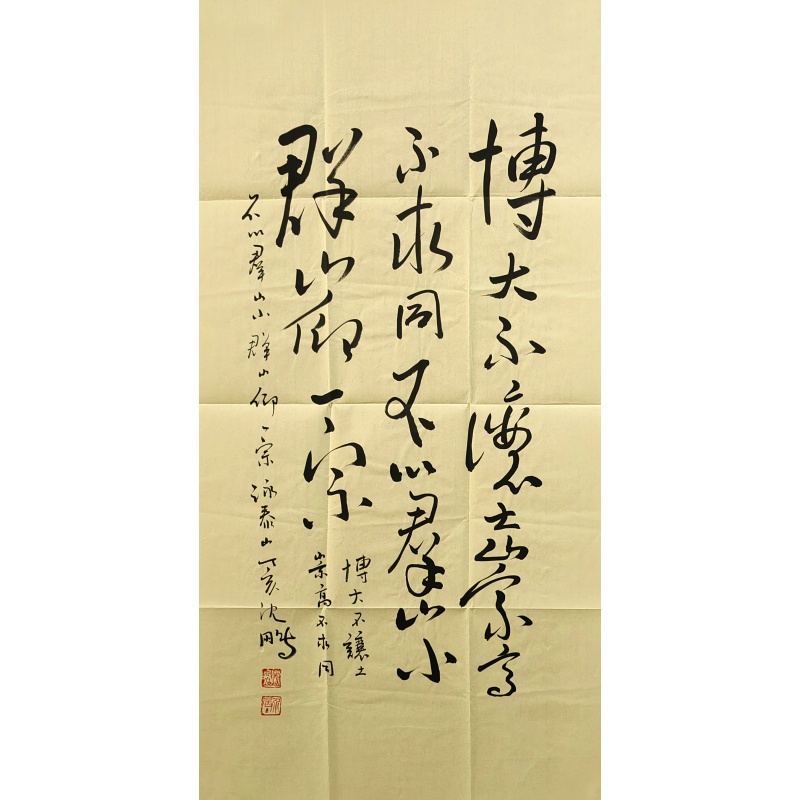 博大不讓土崇高
不求同不以群山小
群山仰一宗
博大不讓土
崇高不求同
不以羣山小群山仰一宗詠泰山丁亥沈鵬